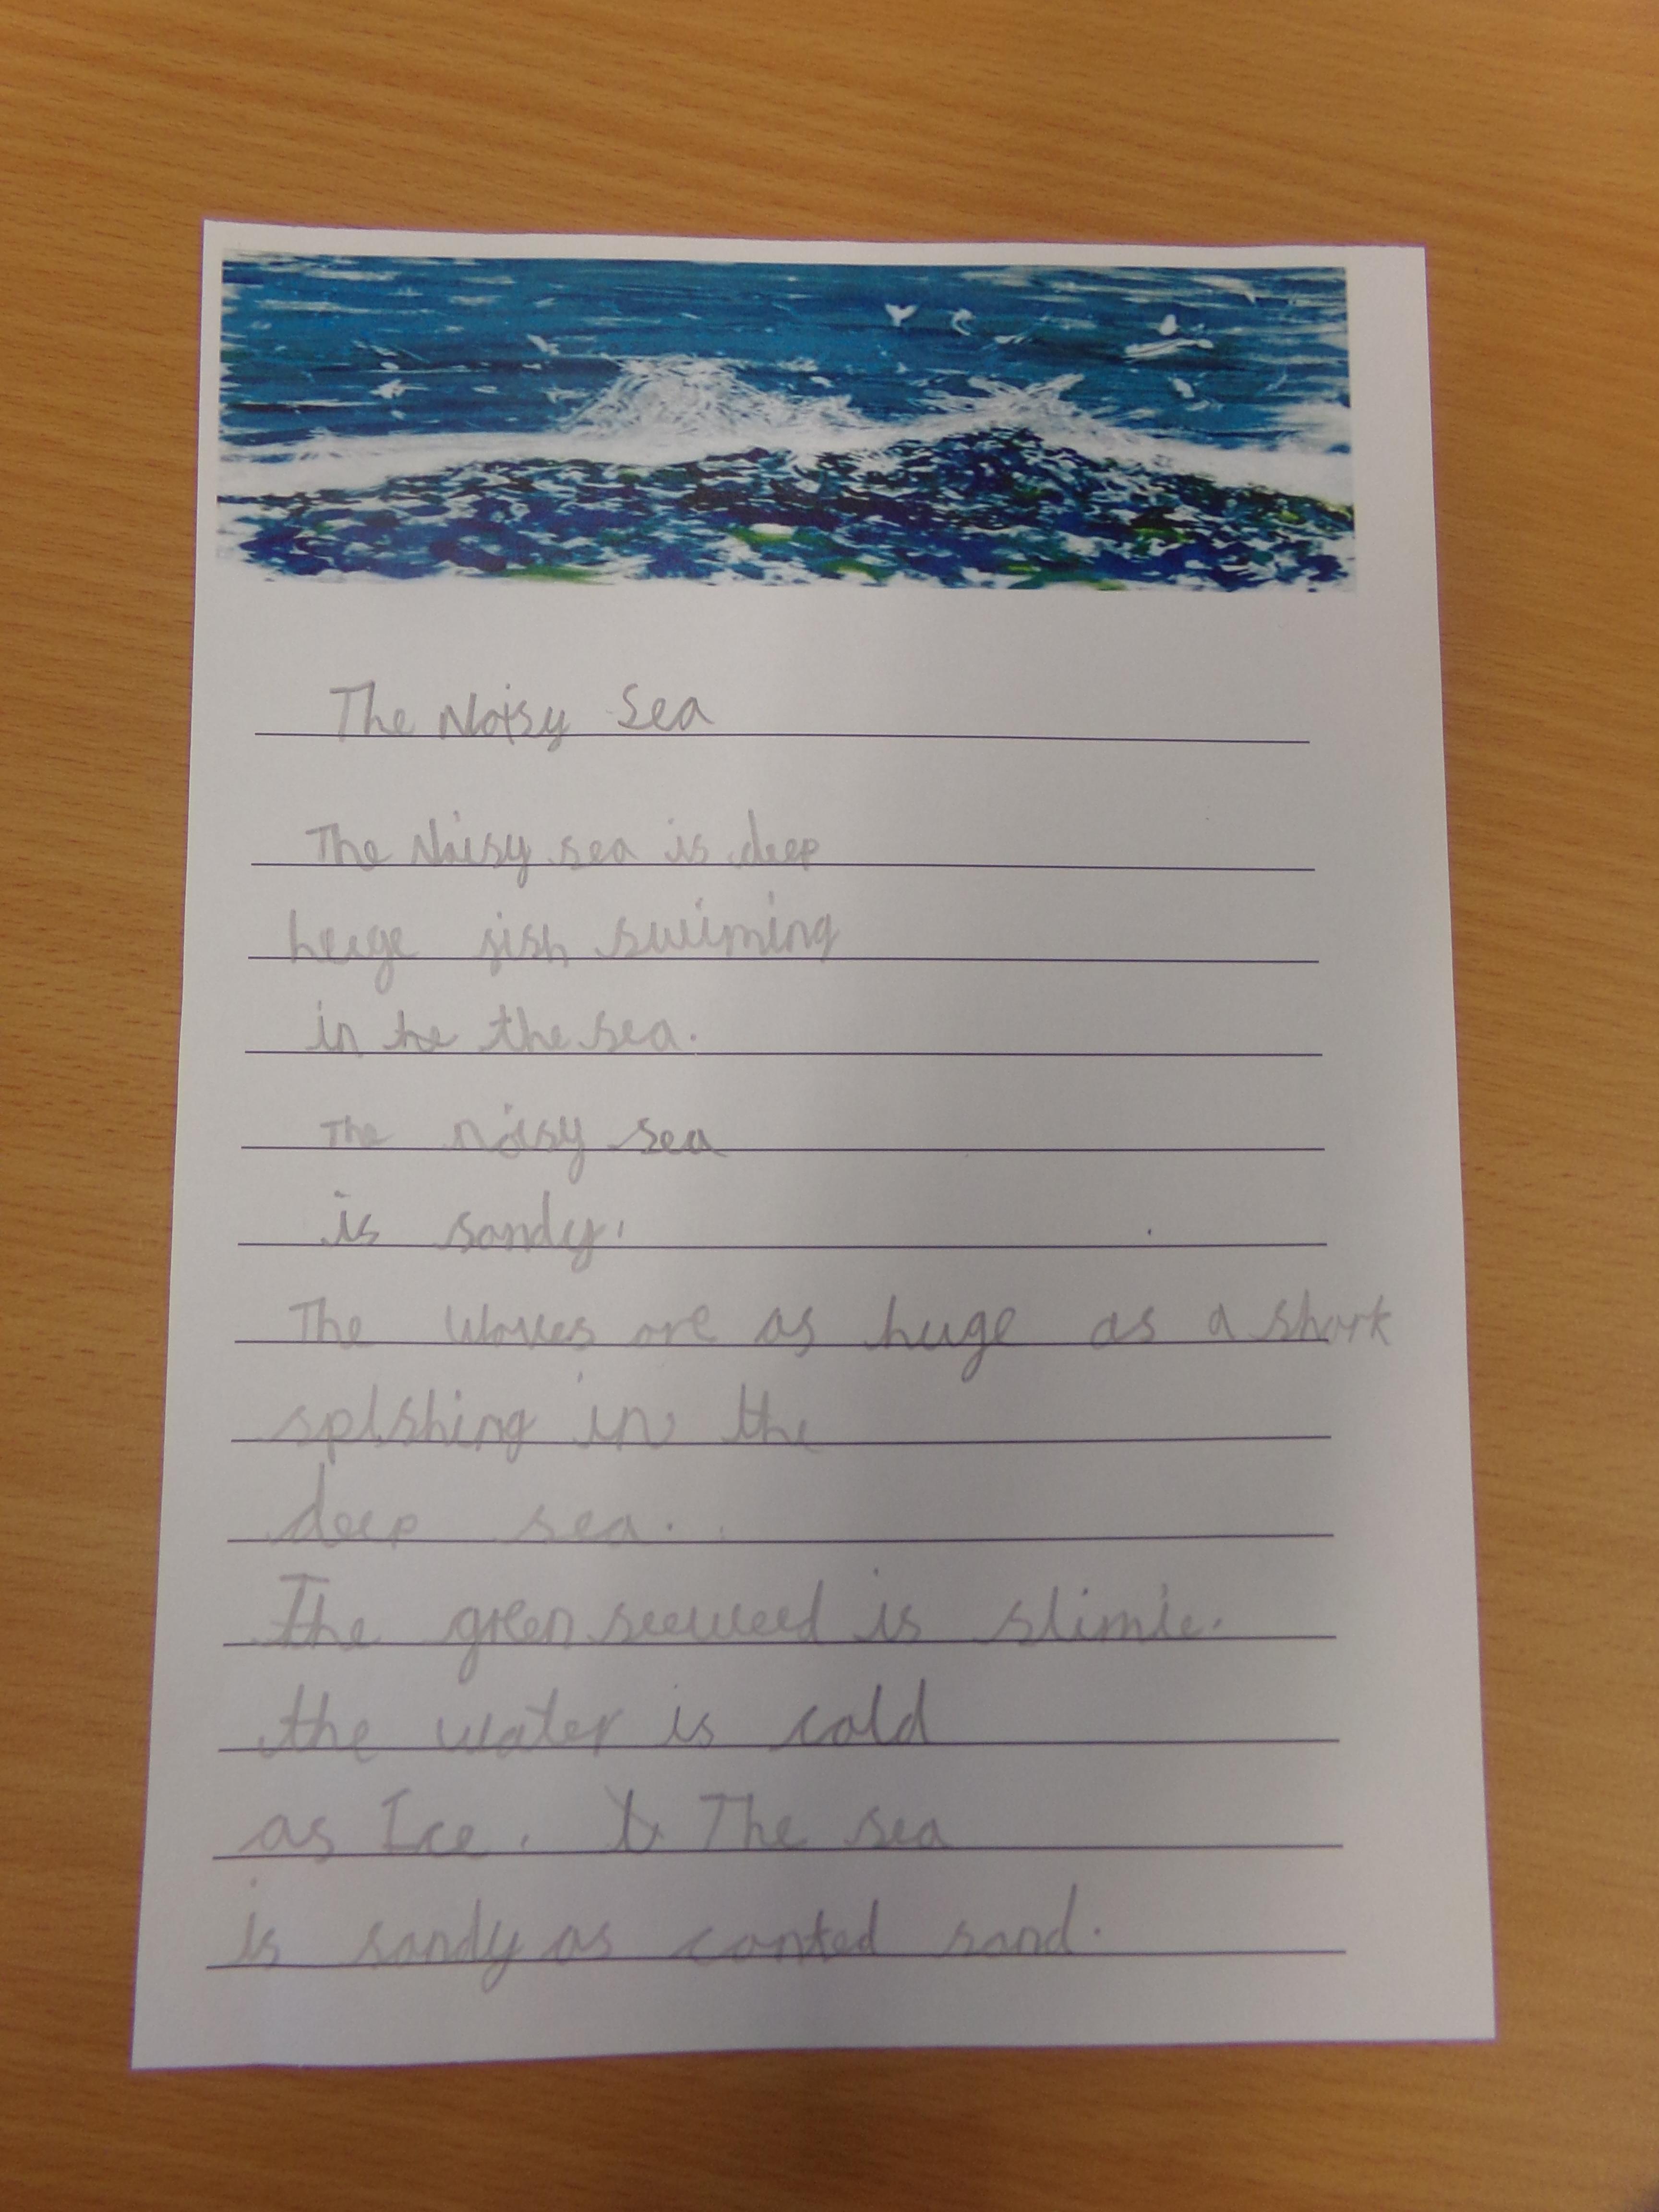 The Noisy Sea
The Noisy sea is deep
heuge fish swiming
in he the sea.
The noisy sea
is sandy.
The Waves are as huge as a shark
splshing in the
deep sea.
The green seeweed is slimie.
the water is cold
as Ice. The sea
is sandy as conted sand.